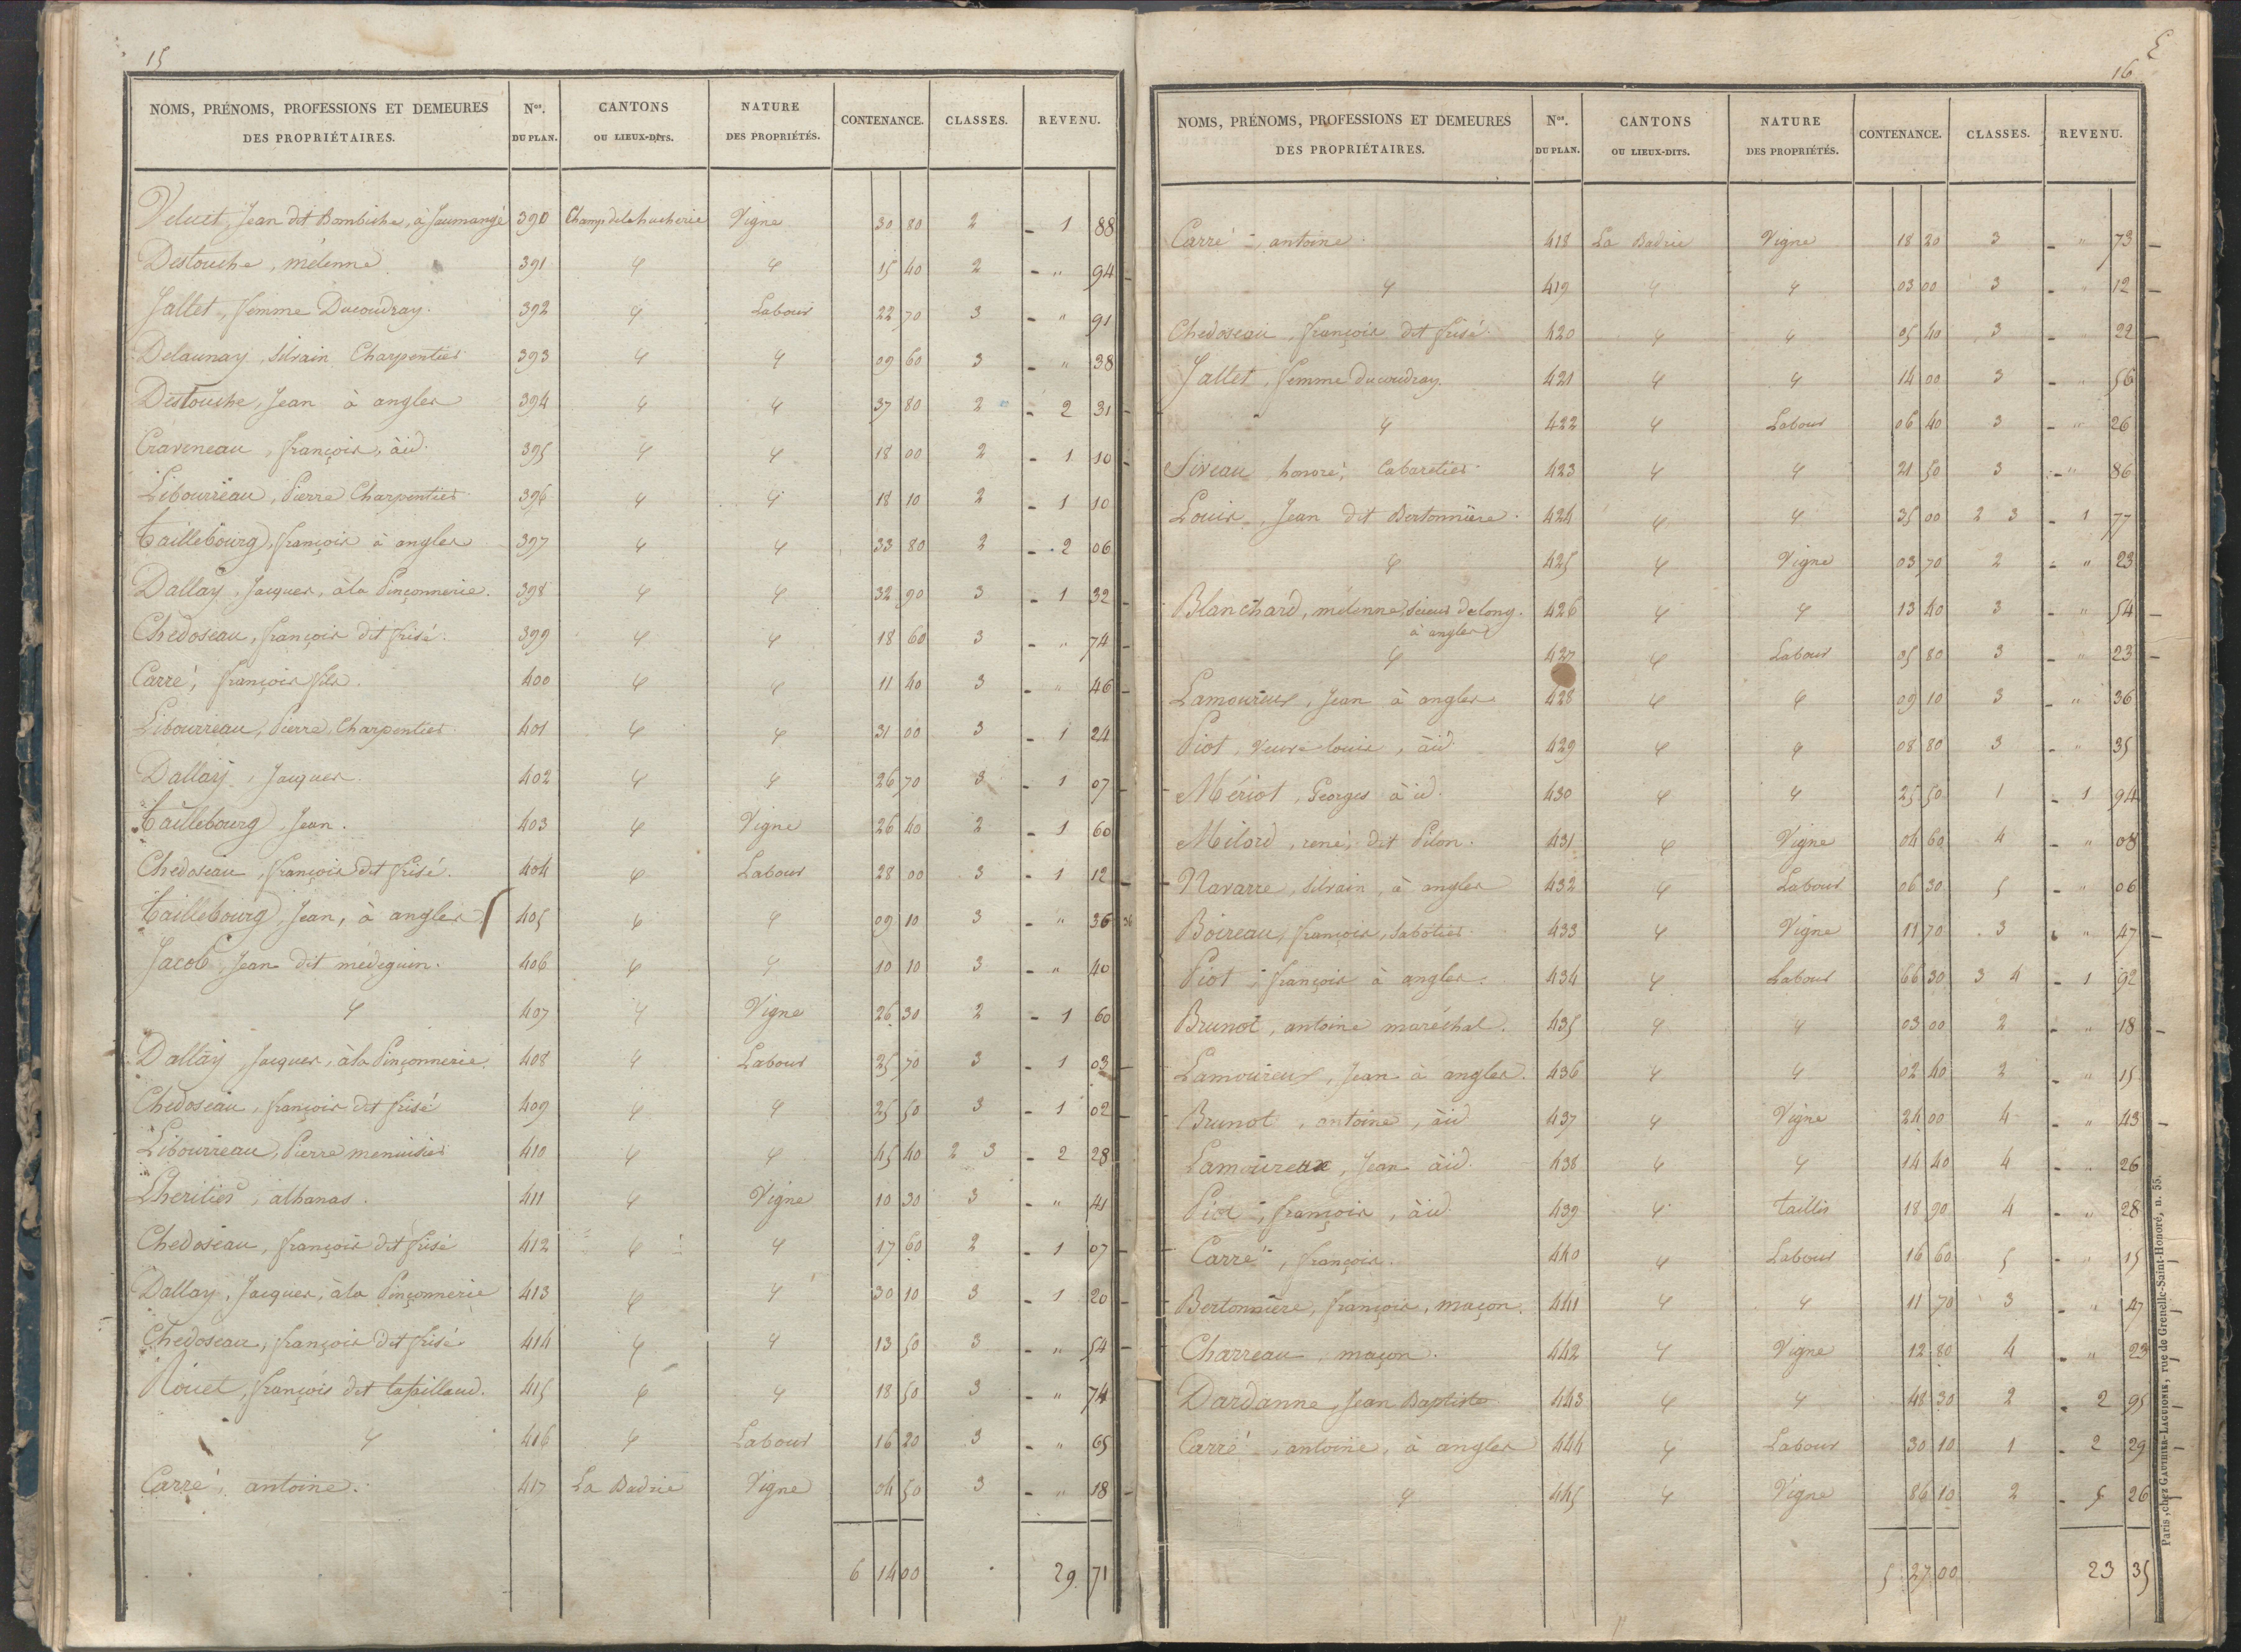 15
NOMS, PRÉNOMS, PROFESSIONS ET DEMEURES DES PROPRIÉTAIRES. Nos. DU PLAN. CANTONS OU LIEUX-DITS. NATURE DES PROPRIÉTÉS. CONTENANCE. CLASSES. REVENU.
Veluet, Jean dit Bombiche, à Jaumangé 390 Champ de la hucherie Vigne 30 80 2 - 1 88
Destouche, mélenne 391 φ φ 15 40 2 - " 94
Jallet, femme Ducoudray. 392 φ Labour 22 70 3 - " 91
Delaunay, Silvain Charpentier 393 φ φ 09 60 3 - " 38
Destouche, Jean à angles 394 φ φ 37 80 2 - 2 31
Craveneau, françois, àid. 395 φ φ 18 00 2 - 1 10
Libourreau, Pierre Charpentier 396 φ φ 18 10 2 - 1 10
Taillebourg, françois à angles 397 φ φ 33 80 2 - 2 06
Dallay, Jacques, à la Pinçonnerie. 398 φ φ 32 90 3 - 1 32
Chedoseau, françois dit frisé. 399 φ φ 18 60 3 - " 74
Carré, françois fils. 400 φ φ 11 40 3 - " 46
Libourreau, Pierre, Charpentier 401 φ φ 31 00 3 - 1 24
Dallay, Jacques. 402 φ φ 26 70 3 - 1 07
Taillebourg, Jean. 403 φ Vigne 26 40 2 - 1 60
Chedoseau, françois dit frisé. 404 φ Labour 28 00 3 - 1 12
Taillebourg, Jean, à angles 405 φ φ 09 10 3 - " 36 36
Jacob, Jean dit médeguin. 406 φ φ 10 10 3 - " 40
φ 407 φ Vigne 26 30 2 - 1 60
Dallay, Jacques, à la Pinçonnerie. 408 φ Labour 25 70 3 - 1 03
Chedoseau, françois dit frisé 409 φ φ 25 50 3 - 1 02
Libourreau, Pierre menuisier 410 φ φ 45 40 2 3 - 2 28
Lheritier, athanas. 411 φ Vigne 10 30 3 - " 41
Chedoseau, françois dit frisé 412 φ φ 17 60 2 - 1 07
Dallay, Jacques, à la Pinçonnerie 413 φ φ 30 10 3 - 1 20
Chedoseau, françois dit frisé 414 φ φ 13 50 3 - " 54
Rouet, françois dit lataillaud. 415 φ φ 18 50 3 - " 74
φ 416 φ Labour 16 20 3 - " 65
Carré, antoine. 417 La Badrie Vigne 04 50 3 - " 18
6 14 00 29 71
16
NOMS, PRÉNOMS, PROFESSIONS ET DEMEURES DES PROPRIÉTAIRES. Nos. DU PLAN. CANTONS OU LIEUX-DITS. NATURE DES PROPRIÉTÉS. CONTENANCE. CLASSES. REVENU.
Carré, antoine. 418 La Badrie Vigne 18 20 3 - " 73
φ 419 φ φ 03 00 3 - " 12
Chedoseau, françois dit frisé. 420 φ φ 05 40 3 - " 22
Jallet, femme ducoudray. 421 φ φ 14 00 3 - " 56
φ 422 φ Labour 06 40 3 - " 26
Siveau, honoré, Cabaretier 423 φ φ 21 50 3 - " 86
Louis, Jean dit Bertonnière. 424 φ φ 35 00 2 3 - 1 77
φ 425 φ Vigne 03 70 2 - " 23
Blanchard, mélenne, scieur de long. 426 φ φ 13 40 3 - " 54
à angles
φ 427 φ Labour 05 80 3 - " 23
Lamoureux, Jean à angles 428 φ φ 09 10 3 - " 36
Piot, Veuve louis, àid. 429 φ φ 08 80 3 - " 35
Mériot, Georges àid. 430 φ φ 25 50 1 - 1 94
Milord, rené, dit Pilon. 431 φ Vigne 04 60 4 - " 08
Navarre, Silvain, à angles 432 φ Labour 06 30 5 - " 06
Boireau, françois, Sabotier 433 φ Vigne 11 70 3 - " 47
Piot, françois à angles. 434 φ Labour 66 30 3 4 - 1 92
Brunot, antoine maréchal. 435 φ φ 03 00 2 - " 18
Lamoureux, Jean à angles. 436 φ φ 02 40 2 - " 15
Brunot, antoine, àid 437 φ Vigne 24 00 4 - " 43
Lamoureux, Jean àid. 438 φ φ 14 40 4 - " 26
Piot, françois, àid. 439 φ Taillis 18 90 4 - " 28
Carré, françois. 440 φ Labour 16 60 5 - " 15
Bertonnière, françois, maçon. 441 φ φ 11 70 3 - " 47
Charreau, maçon. 442 φ Vigne 12 80 4 - " 23
Dardanne, Jean Baptiste 443 φ φ 48 30 2 - 2 95
Carré, antoine, à angles 444 φ Labour 30 10 1 - 2 29
φ 445 φ Vigne 86 10 2 - 5 26
5 27 00 23 35
Paris, chez GAUTHIER-LAGUIONIE, rue de Grenelle-Saint-Honoré, n. 55.